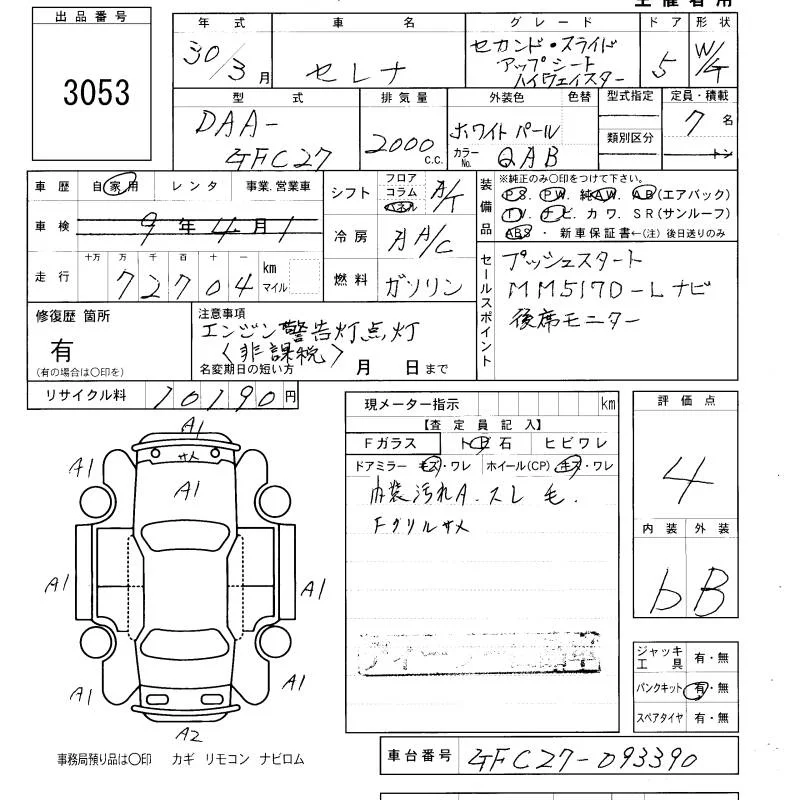 主催者用
出品番号
3053
年式
30/3月
車名
セレナ
グレード
セカンド・スライド
アップシート
ハイウェイスター
ドア
5
形状
W/G
型式
DAA-
GFC27
排気量
2000
c.c.
外装色
ホワイトパール
色替
カラーNo.
QAB
型式指定
類別区分
定員・積載
7名
トン
車歴
自家用
レンタ
事業.営業車
シフト
フロア
コラム
パネル
A/T
装備品
※純正のみ〇印をつけて下さい。
PS. PW. 純AW. AB(エアバック)
TV. ナビ. カワ. SR(サンルーフ)
ABS ・ 新車保証書←(注) 後日送りのみ
車検
9年4月1
冷房
AA/C
走行
十万 万 千 百 十 一
72704
km
マイル
燃料
ガソリン
セールスポイント
プッシュスタート
MM517D-Lナビ
後席モニター
修復歴 箇所
有
(有の場合は〇印を)
注意事項
エンジン警告灯点灯
〈非課税〉
名変期日の短い方 月 日まで
リサイクル料
10190円
現メーター指示
km
【査定員記入】
Fガラス
トビ石
ヒビワレ
ドアミラー キズ・ワレ
ホイール(CP) キズ・ワレ
内装汚れA.スレ毛.
Fグリルサメ
評価点
4
内装 外装
b B
ジャッキ
工具
有・無
パンクキット 有・無
スペアタイヤ 有・無
A1
サメ
A1
A1
A1
A1
A1
A1
A1
A2
事務局預り品は〇印 カギ リモコン ナビロム
車台番号
GFC27-093390